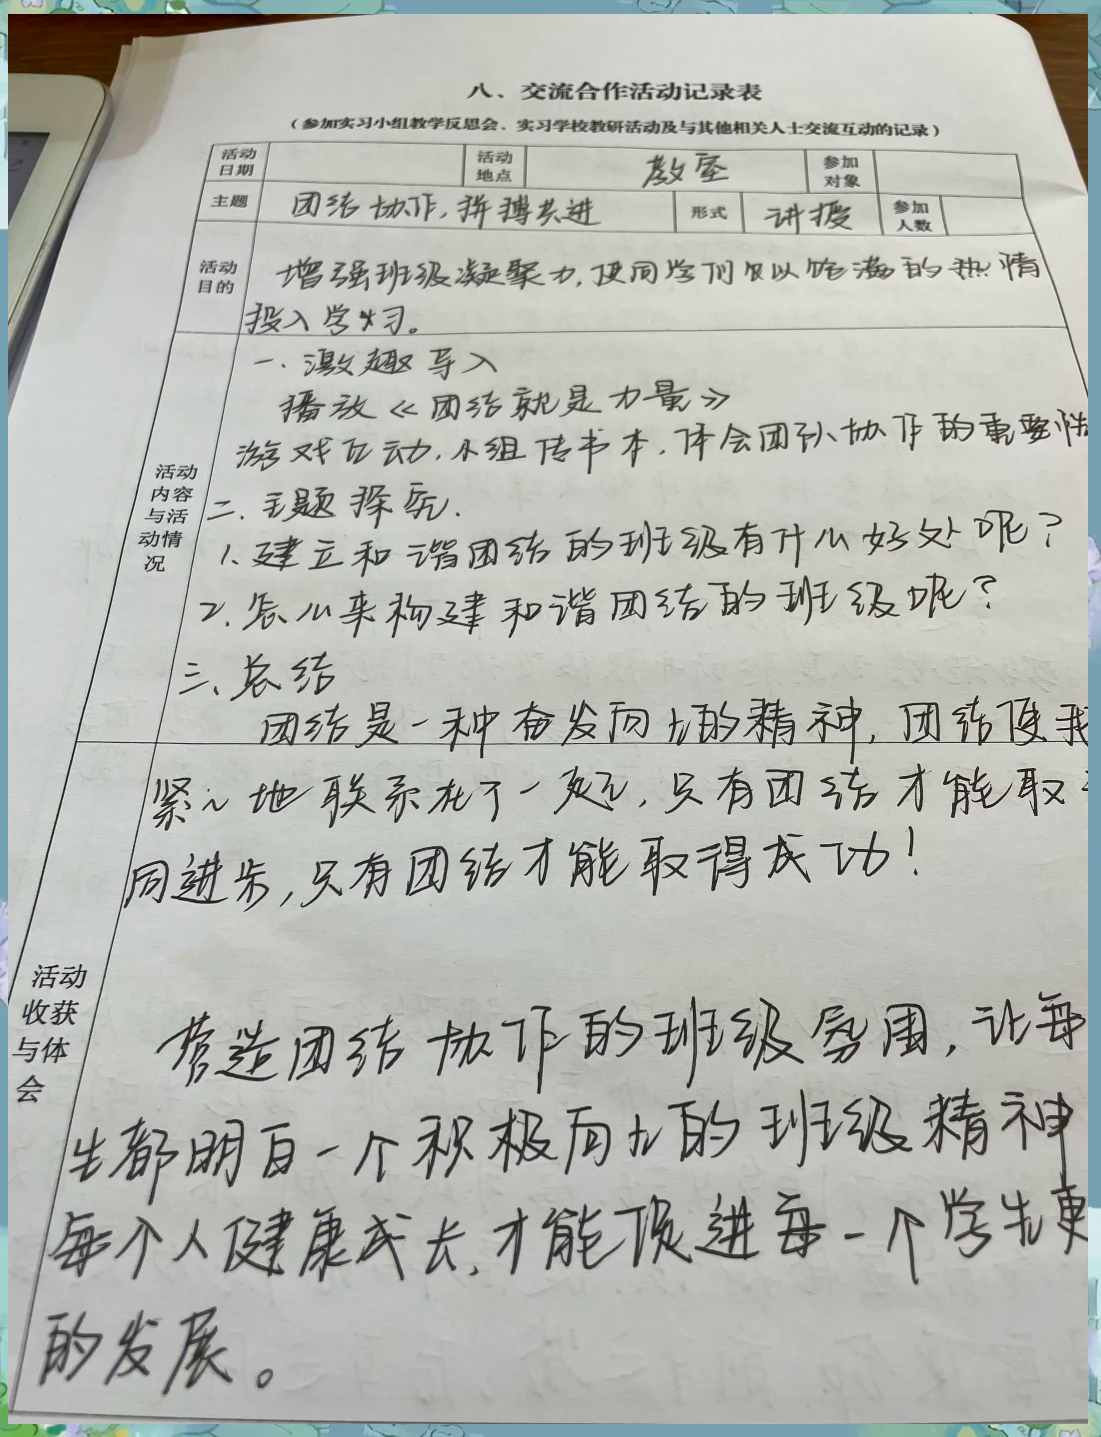 八、交流合作活动记录表
（参加实习小组教学反思会、实习学校教研活动及与其他相关人士交流互动的记录）
活动日期 活动地点 教室 参加对象
主题 团结协作，拼搏共进 形式 讲授 参加人数
活动目的 增强班级凝聚力，使同学们及以饱满的热情
投入学习。
活动内容与活动情况
一、激趣导入
播放《团结就是力量》
游戏互动，小组传书本，体会团队协作的重要性
二、主题探究.
1、建立和谐团结的班级有什么好处呢？
2、怎么来构建和谐团结的班级呢？
三、总结
团结是一种奋发向上的精神，团结使我
紧紧地联系在了一起，只有团结才能取
同进步，只有团结才能取得成功！
活动收获与体会
营造团结协作的班级氛围，让每
生都明白一个积极向上的班级精神
每个人健康成长，才能促进每一个学生更
的发展。